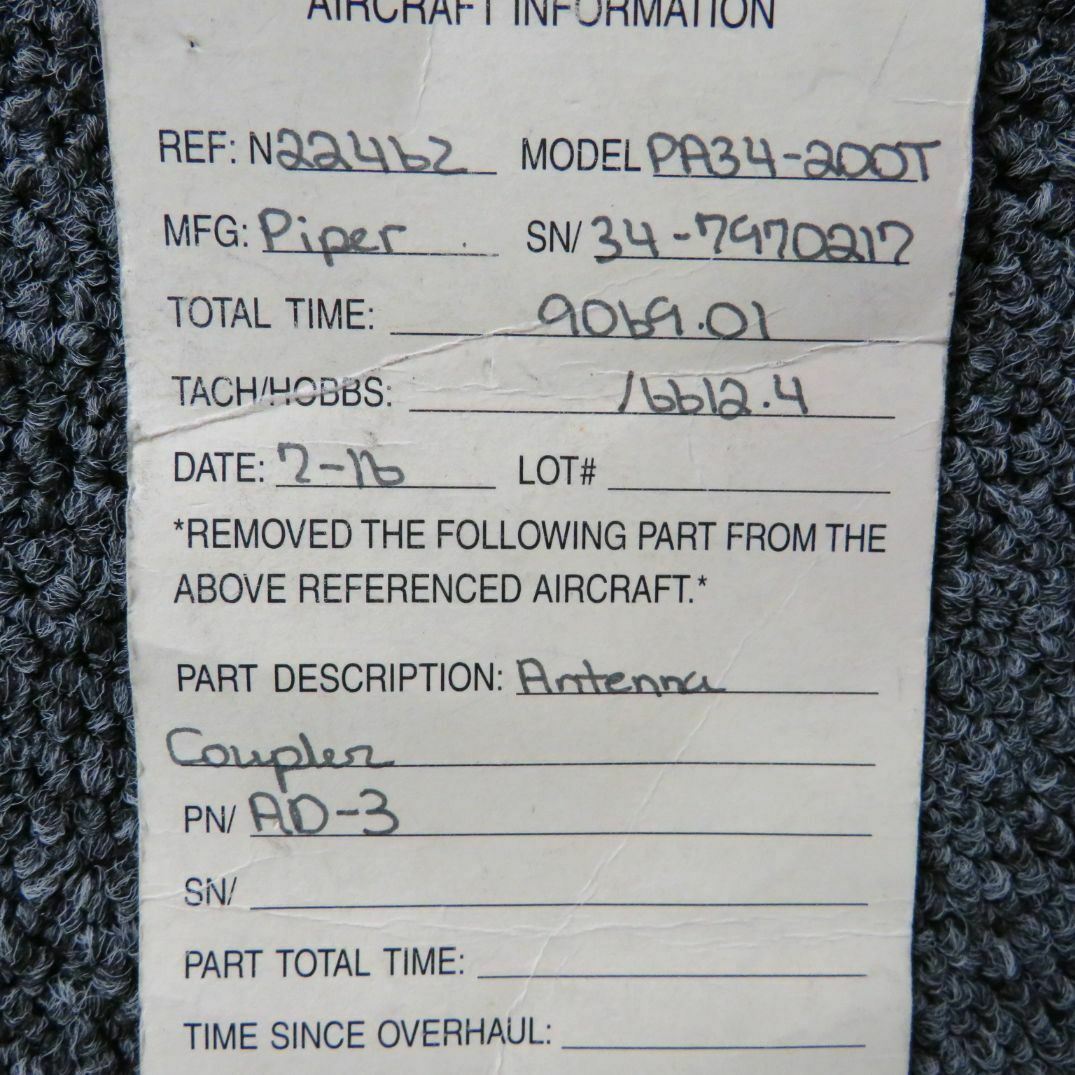 AIRCRAFT INFORMATION
REF: N2246Z MODEL PA34-200T
MFG: Piper SN/ 34-7970217
TOTAL TIME: 9069.01
TACH/HOBBS: 16612.4
DATE: 7-16 LOT#
*REMOVED THE FOLLOWING PART FROM THE
ABOVE REFERENCED AIRCRAFT.*
PART DESCRIPTION: Antenna
Coupler
PN/ AD-3
SN/
PART TOTAL TIME:
TIME SINCE OVERHAUL: